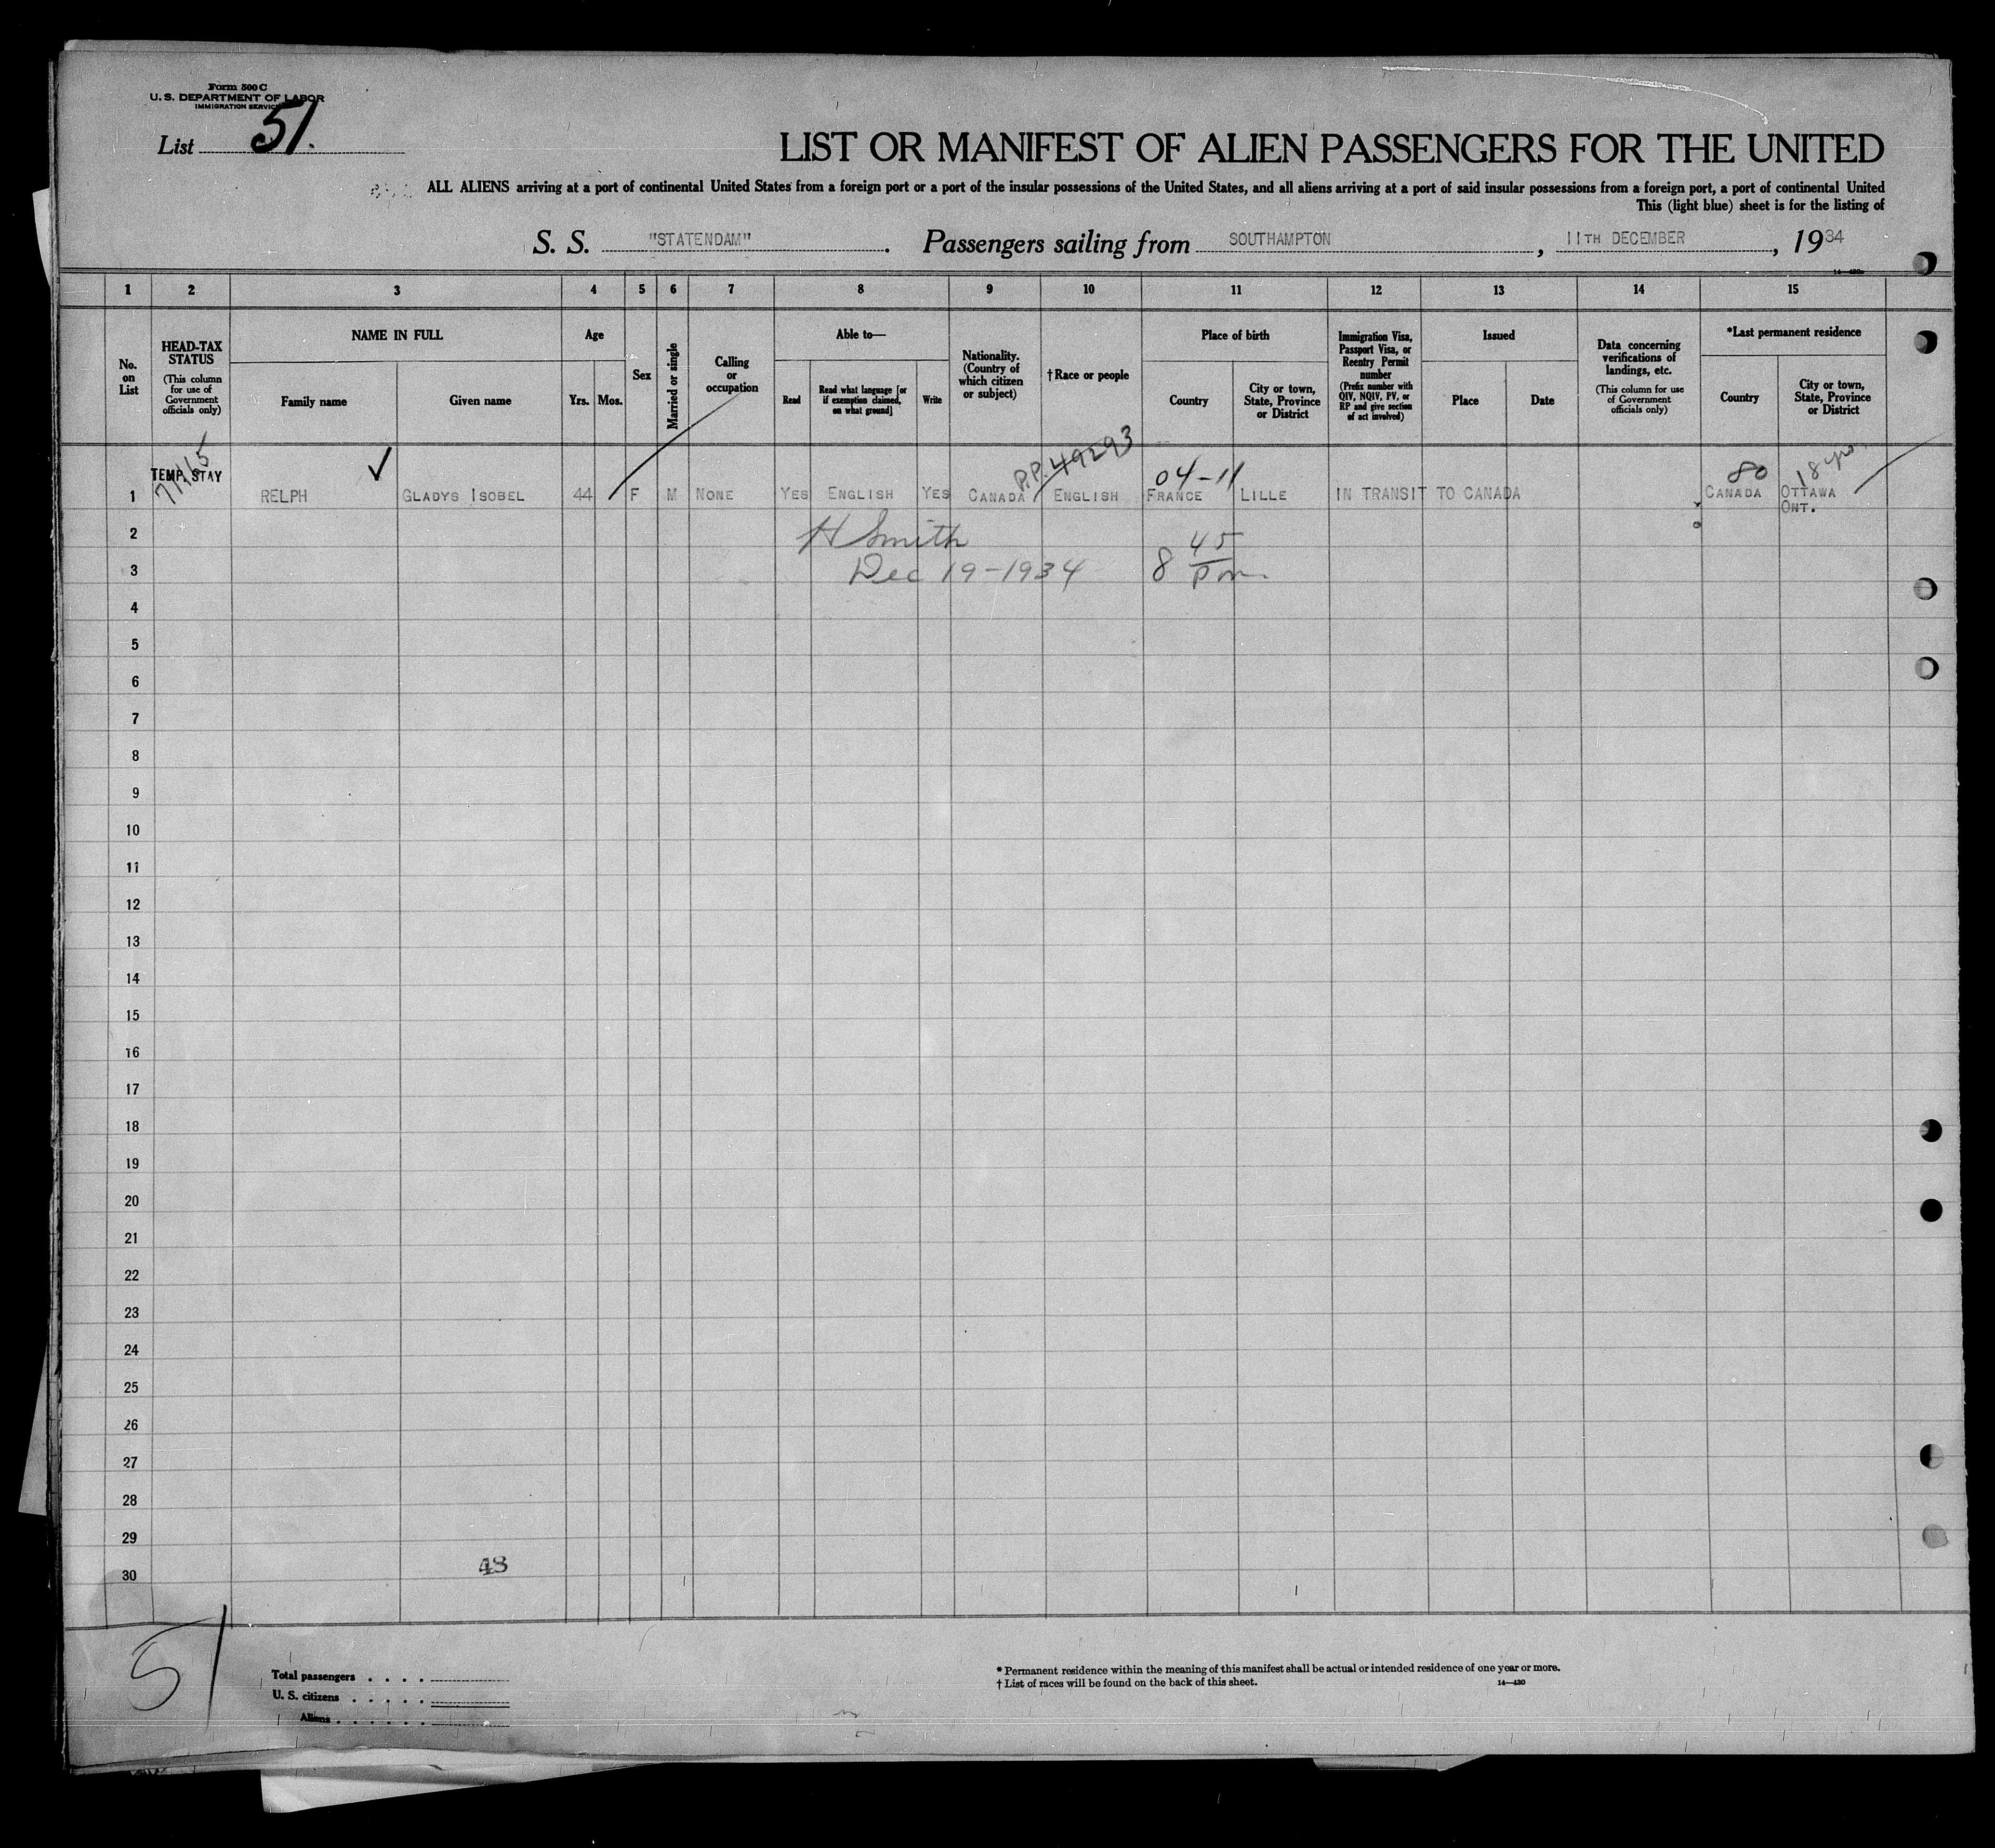 Form 500 C
U. S. DEPARTMENT OF LABOR
IMMIGRATION SERVICE
List 51.
LIST OR MANIFEST OF ALIEN PASSENGERS FOR THE UNITED
ALL ALIENS arriving at a port of continental United States from a foreign port or a port of the insular possessions of the United States, and all aliens arriving at a port of said insular possessions from a foreign port, a port of continental United
This (light blue) sheet is for the listing of
S. S. "STATENDAM". Passengers sailing from SOUTHAMPTON, 11TH DECEMBER, 1934
14—430
1 2 3 4 5 6 7 8 9 10 11 12 13 14 15
No. on List
HEAD-TAX STATUS
(This column for use of Government officials only)
NAME IN FULL
Family name
Given name
Age
Yrs. Mos.
Sex
Married or single
Calling or occupation
Able to—
Read
Read what language [or if exemption claimed, on what ground]
Write
Nationality. (Country of which citizen or subject)
†Race or people
Place of birth
Country
City or town, State, Province or District
Immigration Visa, Passport Visa, or Reentry Permit number
(Prefix number with QIV, NQIV, PV, or RP and give section of act involved)
Issued
Place
Date
Data concerning verifications of landings, etc.
(This column for use of Government officials only)
*Last permanent residence
Country
City or town, State, Province or District
TEMP. STAY
P.P. 49293
04-11
80
18 yrs.
1 RELPH GLADYS ISOBEL 44 F M NONE YES ENGLISH YES CANADA ENGLISH FRANCE LILLE IN TRANSIT TO CANADA CANADA OTTAWA
ONT.
2 H Smith
3 Dec 19-1934 8 45 pm
4
5
6
7
8
9
10
11
12
13
14
15
16
17
18
19
20
21
22
23
24
25
26
27
28
29
48
30
51
Total passengers . . . .
U. S. citizens . . . . .
Aliens . . . . . .
* Permanent residence within the meaning of this manifest shall be actual or intended residence of one year or more.
† List of races will be found on the back of this sheet.
14—430